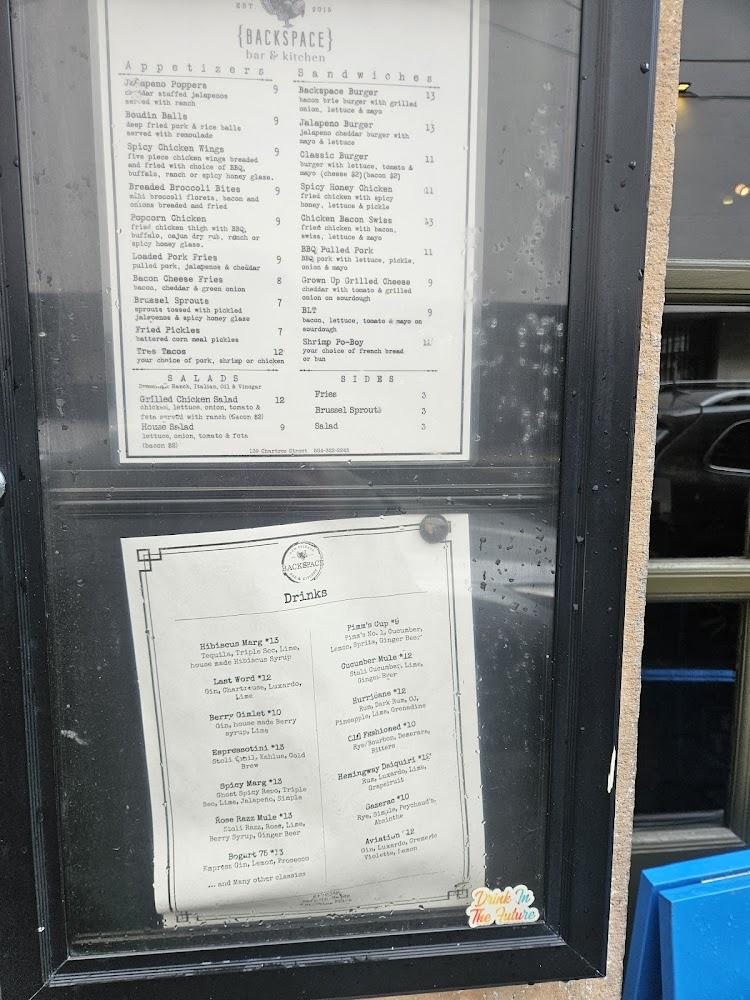 EST. 2015
{BACKSPACE}
bar & kitchen
Appetizers
Jalapeno Poppers 9
cheddar stuffed jalapenos
served with ranch
Boudin Balls 9
deep fried pork & rice balls
served with remoulade
Spicy Chicken Wings 9
five piece chicken wings breaded
and fried with choice of BBQ,
buffalo, ranch or spicy honey glaze.
Breaded Broccoli Bites 9
mini broccoli florets, bacon and
onions breaded and fried
Popcorn Chicken 9
fried chicken thigh with BBQ,
buffalo, cajun dry rub, ranch or
spicy honey glaze.
Loaded Pork Fries 9
pulled pork, jalapenos & cheddar
Bacon Cheese Fries 8
bacon, cheddar & green onion
Brussel Sprouts 7
sprouts tossed with pickled
jalapenos & spicy honey glaze
Fried Pickles 7
battered corn meal pickles
Tres Tacos 12
your choice of pork, shrimp or chicken
SALADS
Ranch, Italian, Oil & Vinegar
Grilled Chicken Salad 12
chicken, lettuce, onion, tomato &
feta served with ranch (Bacon $2)
House Salad 9
lettuce, onion, tomato & feta
(bacon $2)
Sandwiches
Backspace Burger 13
bacon brie burger with grilled
onion, lettuce & mayo
Jalapeno Burger 13
jalapeno cheddar burger with
mayo & lettuce
Classic Burger 11
burger with lettuce, tomato &
mayo (cheese $2)(bacon $2)
Spicy Honey Chicken 11
fried chicken with spicy
honey, lettuce & pickle
Chicken Bacon Swiss 13
fried chicken with bacon,
swiss, lettuce & mayo
BBQ Pulled Pork 11
BBQ pork with lettuce, pickle,
onion & mayo
Grown Up Grilled Cheese 9
cheddar with tomato & grilled
onion on sourdough
BLT 9
bacon, lettuce, tomato & mayo on
sourdough
Shrimp Po-Boy 11
your choice of french bread
or bun
SIDES
Fries 3
Brussel Sprouts 3
Salad 3
139 Chartres Street 504-322-2245
BACKSPACE
BAR & KITCHEN
Drinks
Hibiscus Marg *13
Tequila, Triple Sec, Lime,
house made Hibiscus Syrup
Last Word *12
Gin, Chartreuse, Luxardo,
Lime
Berry Gimlet *10
Gin, house made Berry
syrup, Lime
Espressotini *13
Stoli Vanil, Kahlua, Cold
Brew
Spicy Marg *13
Ghost Spicy Repo, Triple
Sec, Lime, Jalapeño, Simple
Rose Razz Mule *13
Stoli Razz, Rose, Lime,
Berry Syrup, Ginger Beer
Bogart 75 *13
Empress Gin, Lemon, Prosecco
... and Many other classics
Pimm's Cup *9
Pimm's No. 1, Cucumber,
Lemon, Sprite, Ginger Beer
Cucumber Mule *12
Stoli Cucumber, Lime,
Ginger Beer
Hurricane *12
Rum, Dark Rum, OJ,
Pineapple, Lime, Grenadine
Old Fashioned *10
Rye/Bourbon, Demerara,
Bitters
Hemingway Daiquiri *12
Rum, Luxardo, Lime,
Grapefruit
Sazerac *10
Rye, Simple, Peychaud's,
Absinthe
Aviation *12
Gin, Luxardo, Creme de
Violette, Lemon
Drink In
The Future